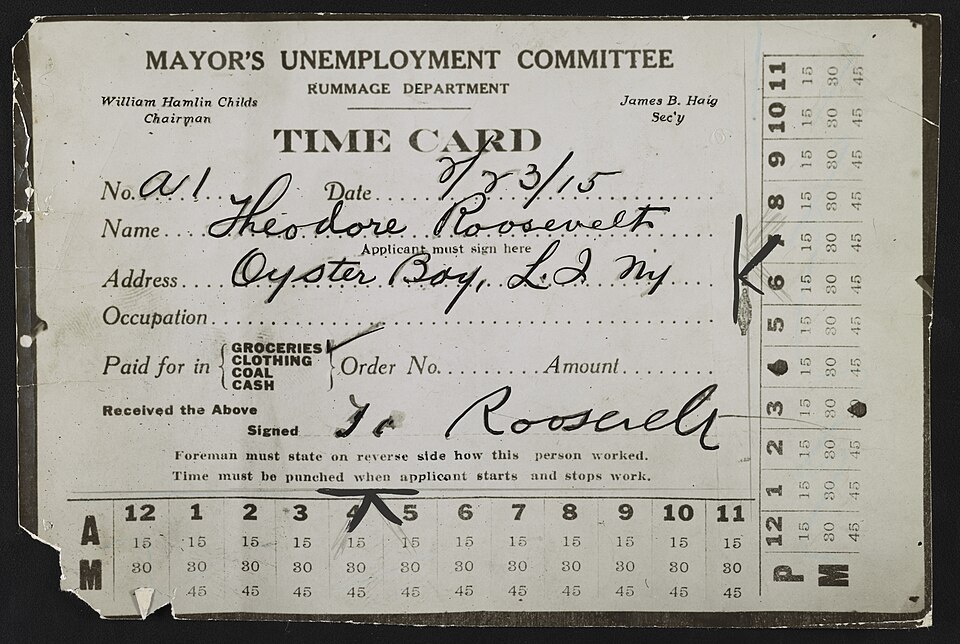 MAYOR'S UNEMPLOYMENT COMMITTEE
RUMMAGE DEPARTMENT
William Hamlin Childs
Chairman
James B. Haig
Sec'y
TIME CARD
No. a1 Date 2/23/15
Name Theodore Roosevelt
Applicant must sign here
Address Oyster Bay, L.I. Ny
Occupation
Paid for in { GROCERIES CLOTHING COAL CASH } Order No. Amount
Received the Above
Signed T. Roosevelt
Foreman must state on reverse side how this person worked.
Time must be punched when applicant starts and stops work.
AM
12 1 2 3 4 5 6 7 8 9 10 11
15 15 15 15 15 15 15 15 15 15 15 15
30 30 30 30 30 30 30 30 30 30 30 30
45 45 45 45 45 45 45 45 45 45 45
PM
12 1 2 3 4 5 6 7 8 9 10 11
15 15 15 15 15 15 15 15 15 15 15 15
30 30 30 30 30 30 30 30 30 30 30 30
45 45 45 45 45 45 45 45 45 45 45